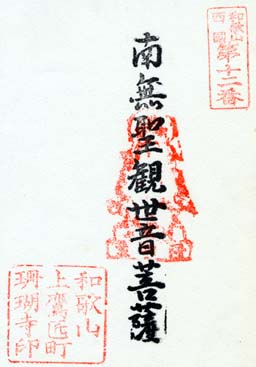 和歌山
西國
第十二番
南無聖観世音菩薩
和歌山
上鷹匠町
珊瑚寺印